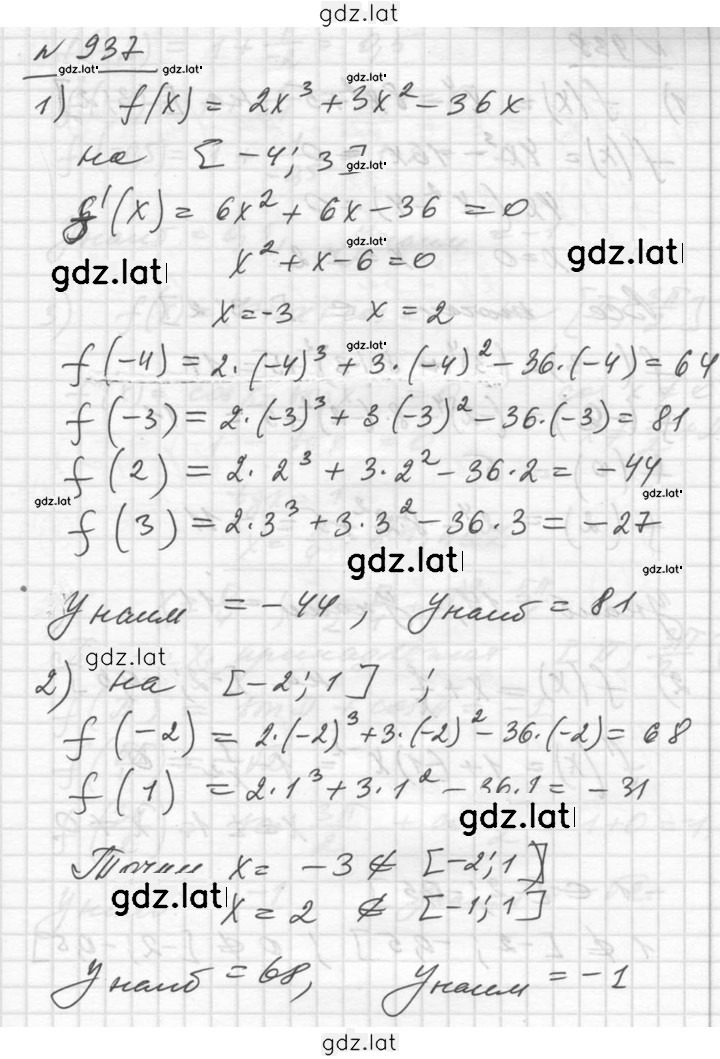 gdz.lat
№ 937
gdz.lat gdz.lat gdz.lat
1) f(x) = 2x³ + 3x² - 36x
на [-4; 3]
gdz.lat
f'(x) = 6x² + 6x - 36 = 0
gdz.lat
x² + x - 6 = 0
gdz.lat gdz.lat
x = -3 x = 2
gdz.lat
f(-4) = 2·(-4)³ + 3·(-4)² - 36·(-4) = 64
f(-3) = 2·(-3)³ + 3·(-3)² - 36·(-3) = 81
f(2) = 2·2³ + 3·2² - 36·2 = -44
gdz.lat gdz.lat
f(3) = 2·3³ + 3·3² - 36·3 = -27
gdz.lat gdz.lat
y наим = -44, y наиб = 81
gdz.lat
2) на [-2; 1];
f(-2) = 2·(-2)³ + 3·(-2)² - 36·(-2) = 68
f(1) = 2·1³ + 3·1² - 36·1 = -31
gdz.lat
Точки x = -3 ∉ [-2; 1]
gdz.lat
x = 2 ∉ [-1; 1]
y наиб = 68, y наим = -1
gdz.lat